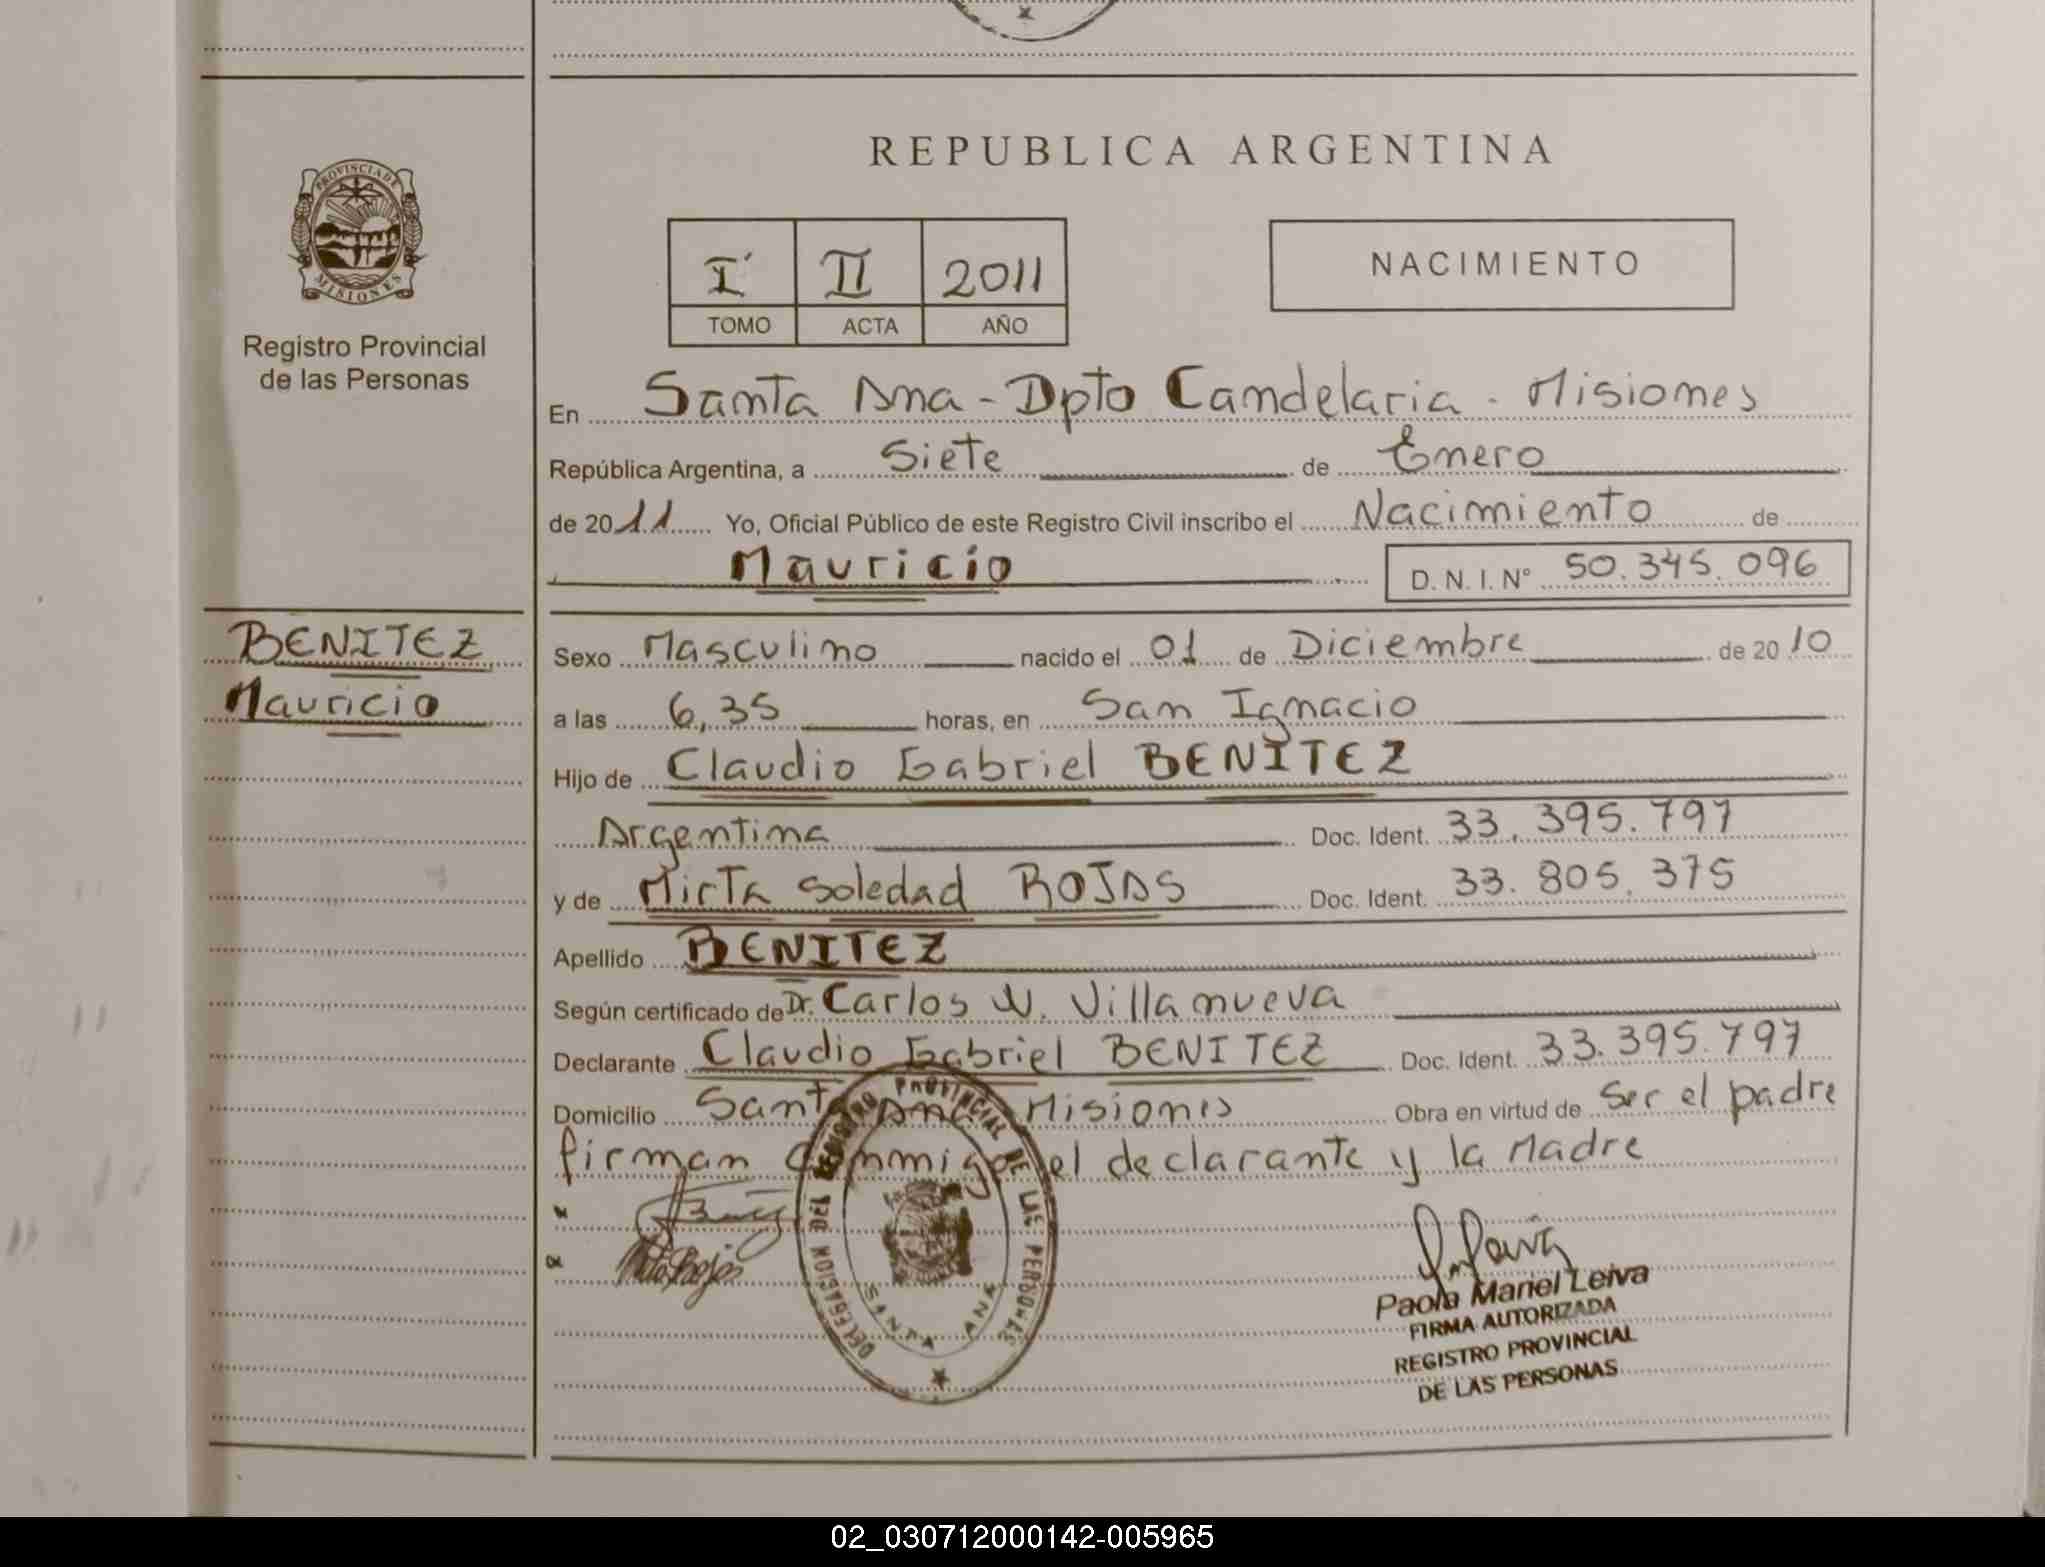 REPUBLICA ARGENTINA
PROVINCIA DE
MISIONES
Registro Provincial
de las Personas
I II 2011
TOMO ACTA AÑO
NACIMIENTO
En Santa Ana - Dpto Candelaria - Misiones
República Argentina, a Siete de Enero
de 2011 Yo, Oficial Público de este Registro Civil inscribo el Nacimiento de
Mauricio D. N. I. N° 50.345.096
BENITEZ
Mauricio
Sexo Masculino nacido el 01 de Diciembre de 2010
a las 6,35 horas, en San Ignacio
Hijo de Claudio Gabriel BENITEZ
Argentina Doc. Ident. 33.395.797
y de Mirta Soledad ROJAS Doc. Ident. 33.805.375
Apellido BENITEZ
Según certificado de Dr. Carlos W. Villanueva
Declarante Claudio Gabriel BENITEZ Doc. Ident. 33.395.797
Domicilio Santa Ana Misiones Obra en virtud de Ser el padre
firman conmigo el declarante y la Madre
DELEGACION DEL REGISTRO PROVINCIAL DE LAS PERSONAS
SANTA ANA
Paola Mariel Leiva
FIRMA AUTORIZADA
REGISTRO PROVINCIAL
DE LAS PERSONAS
02_030712000142-005965